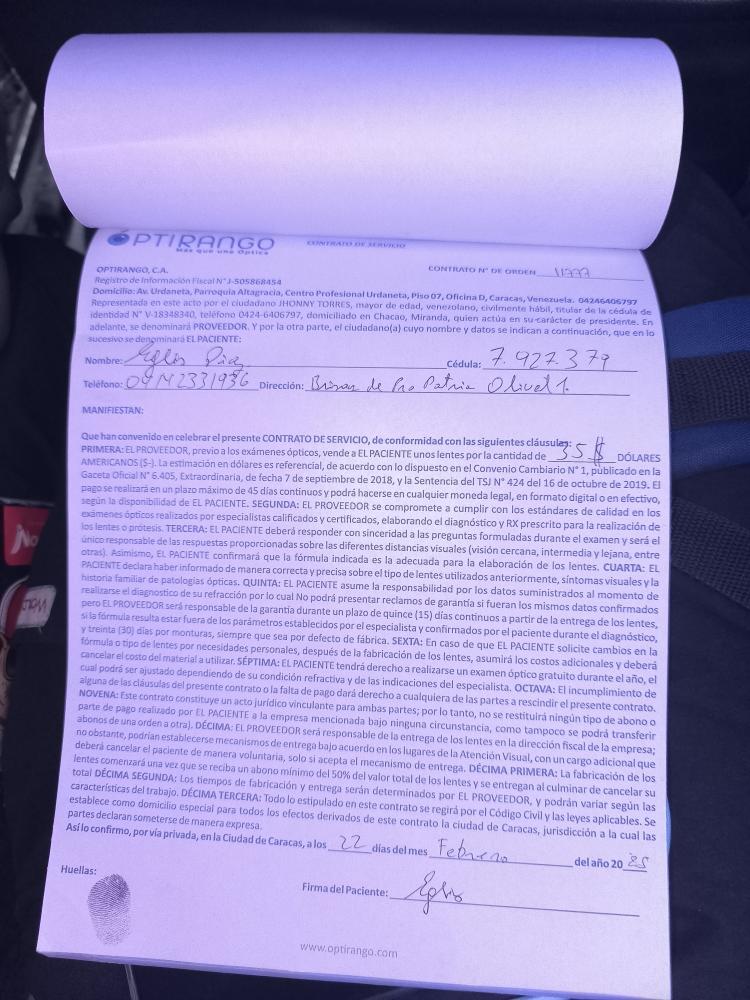 OPTIRANGO
Más que una Óptica
CONTRATO DE SERVICIO
OPTIRANGO, C.A.
CONTRATO N° DE ORDEN 11777
Registro de Información Fiscal N° J-505868454
Domicilio: Av. Urdaneta, Parroquia Altagracia, Centro Profesional Urdaneta, Piso 07, Oficina D, Caracas, Venezuela. 04246406797
Representada en este acto por el ciudadano JHONNY TORRES, mayor de edad, venezolano, civilmente hábil, titular de la cédula de
identidad N° V-18348340, teléfono 0424-6406797, domiciliado en Chacao, Miranda, quien actúa en su carácter de presidente. En
adelante, se denominará PROVEEDOR. Y por la otra parte, el ciudadano(a) cuyo nombre y datos se indican a continuación, que en lo
sucesivo se denominará EL PACIENTE:
Nombre: Eglis Diaz Cédula: 7.927.379
Teléfono: 04142331936 Dirección: Brisas de Pro Patria Olivel 1.
MANIFIESTAN:
Que han convenido en celebrar el presente CONTRATO DE SERVICIO, de conformidad con las siguientes cláusulas:
PRIMERA: EL PROVEEDOR, previo a los exámenes ópticos, vende a EL PACIENTE unos lentes por la cantidad de 35 $ DÓLARES
AMERICANOS ($-). La estimación en dólares es referencial, de acuerdo con lo dispuesto en el Convenio Cambiario N° 1, publicado en la
Gaceta Oficial N° 6.405, Extraordinaria, de fecha 7 de septiembre de 2018, y la Sentencia del TSJ N° 424 del 16 de octubre de 2019. El
pago se realizará en un plazo máximo de 45 días continuos y podrá hacerse en cualquier moneda legal, en formato digital o en efectivo,
según la disponibilidad de EL PACIENTE. SEGUNDA: EL PROVEEDOR se compromete a cumplir con los estándares de calidad en los
exámenes ópticos realizados por especialistas calificados y certificados, elaborando el diagnóstico y RX prescrito para la realización de
los lentes o prótesis. TERCERA: EL PACIENTE deberá responder con sinceridad a las preguntas formuladas durante el examen y será el
único responsable de las respuestas proporcionadas sobre las diferentes distancias visuales (visión cercana, intermedia y lejana, entre
otras). Asimismo, EL PACIENTE confirmará que la fórmula indicada es la adecuada para la elaboración de los lentes. CUARTA: EL
PACIENTE declara haber informado de manera correcta y precisa sobre el tipo de lentes utilizados anteriormente, síntomas visuales y la
historia familiar de patologías ópticas. QUINTA: EL PACIENTE asume la responsabilidad por los datos suministrados al momento de
realizarse el diagnostico de su refracción por lo cual No podrá presentar reclamos de garantía si fueran los mismos datos confirmados
pero EL PROVEEDOR será responsable de la garantía durante un plazo de quince (15) días continuos a partir de la entrega de los lentes,
si la fórmula resulta estar fuera de los parámetros establecidos por el especialista y confirmados por el paciente durante el diagnóstico,
y treinta (30) días por monturas, siempre que sea por defecto de fábrica. SEXTA: En caso de que EL PACIENTE solicite cambios en la
fórmula o tipo de lentes por necesidades personales, después de la fabricación de los lentes, asumirá los costos adicionales y deberá
cancelar el costo del material a utilizar. SÉPTIMA: EL PACIENTE tendrá derecho a realizarse un examen óptico gratuito durante el año, el
cual podrá ser ajustado dependiendo de su condición refractiva y de las indicaciones del especialista. OCTAVA: El incumplimiento de
alguna de las cláusulas del presente contrato o la falta de pago dará derecho a cualquiera de las partes a rescindir el presente contrato.
NOVENA: Este contrato constituye un acto jurídico vinculante para ambas partes; por lo tanto, no se restituirá ningún tipo de abono o
parte de pago realizado por EL PACIENTE a la empresa mencionada bajo ninguna circunstancia, como tampoco se podrá transferir
abonos de una orden a otra). DÉCIMA: EL PROVEEDOR será responsable de la entrega de los lentes en la dirección fiscal de la empresa;
no obstante, podrían establecerse mecanismos de entrega bajo acuerdo en los lugares de la Atención Visual, con un cargo adicional que
deberá cancelar el paciente de manera voluntaria, solo si acepta el mecanismo de entrega. DÉCIMA PRIMERA: La fabricación de los
lentes comenzará una vez que se reciba un abono mínimo del 50% del valor total de los lentes y se entregan al culminar de cancelar su
total DÉCIMA SEGUNDA: Los tiempos de fabricación y entrega serán determinados por EL PROVEEDOR, y podrán variar según las
características del trabajo. DÉCIMA TERCERA: Todo lo estipulado en este contrato se regirá por el Código Civil y las leyes aplicables. Se
establece como domicilio especial para todos los efectos derivados de este contrato la ciudad de Caracas, jurisdicción a la cual las
partes declaran someterse de manera expresa.
Así lo confirmo, por vía privada, en la Ciudad de Caracas, a los 22 días del mes Febrero del año 2025
Huellas:
Firma del Paciente: Eglis
www.optirango.com